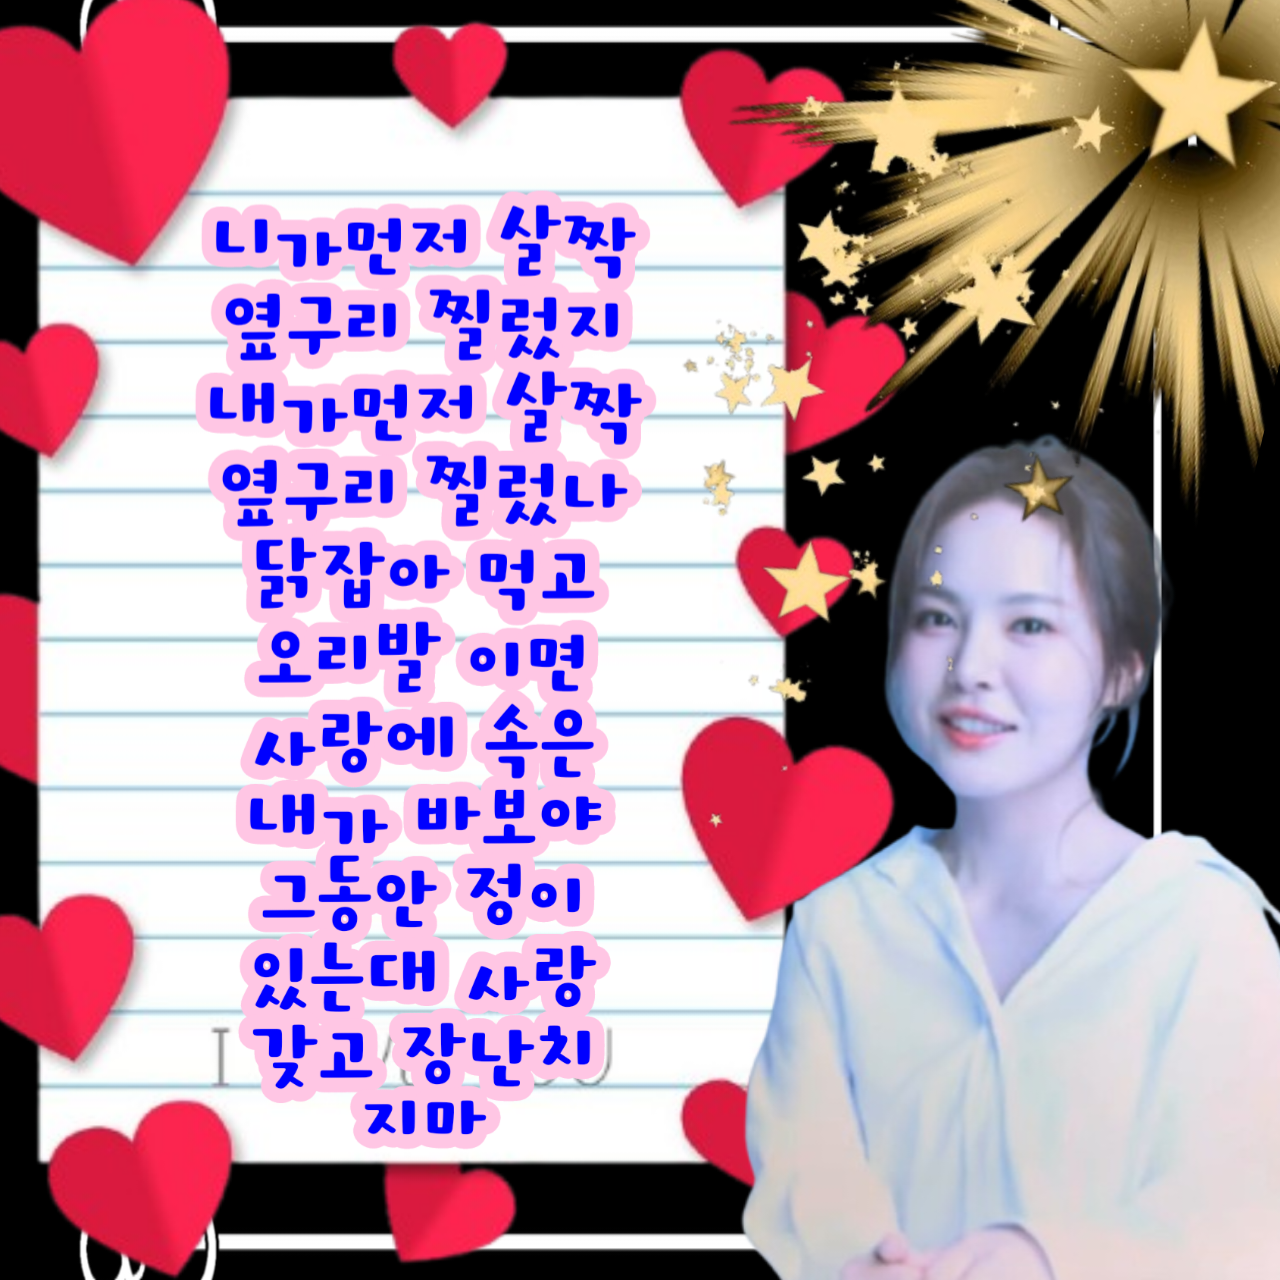 니가먼저 살짝
옆구리 찔렀지
내가먼저 살짝
옆구리 찔렀나
닭잡아 먹고
오리발 이면
사랑에 속은
내가 바보야
그동안 정이
있는대 사랑
갖고 장난치
지마